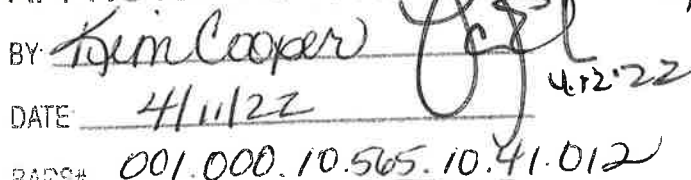 BY Kim Cooper
4.12.22
DATE 4/11/22
BARS# 001.000.10.565.10.41.012